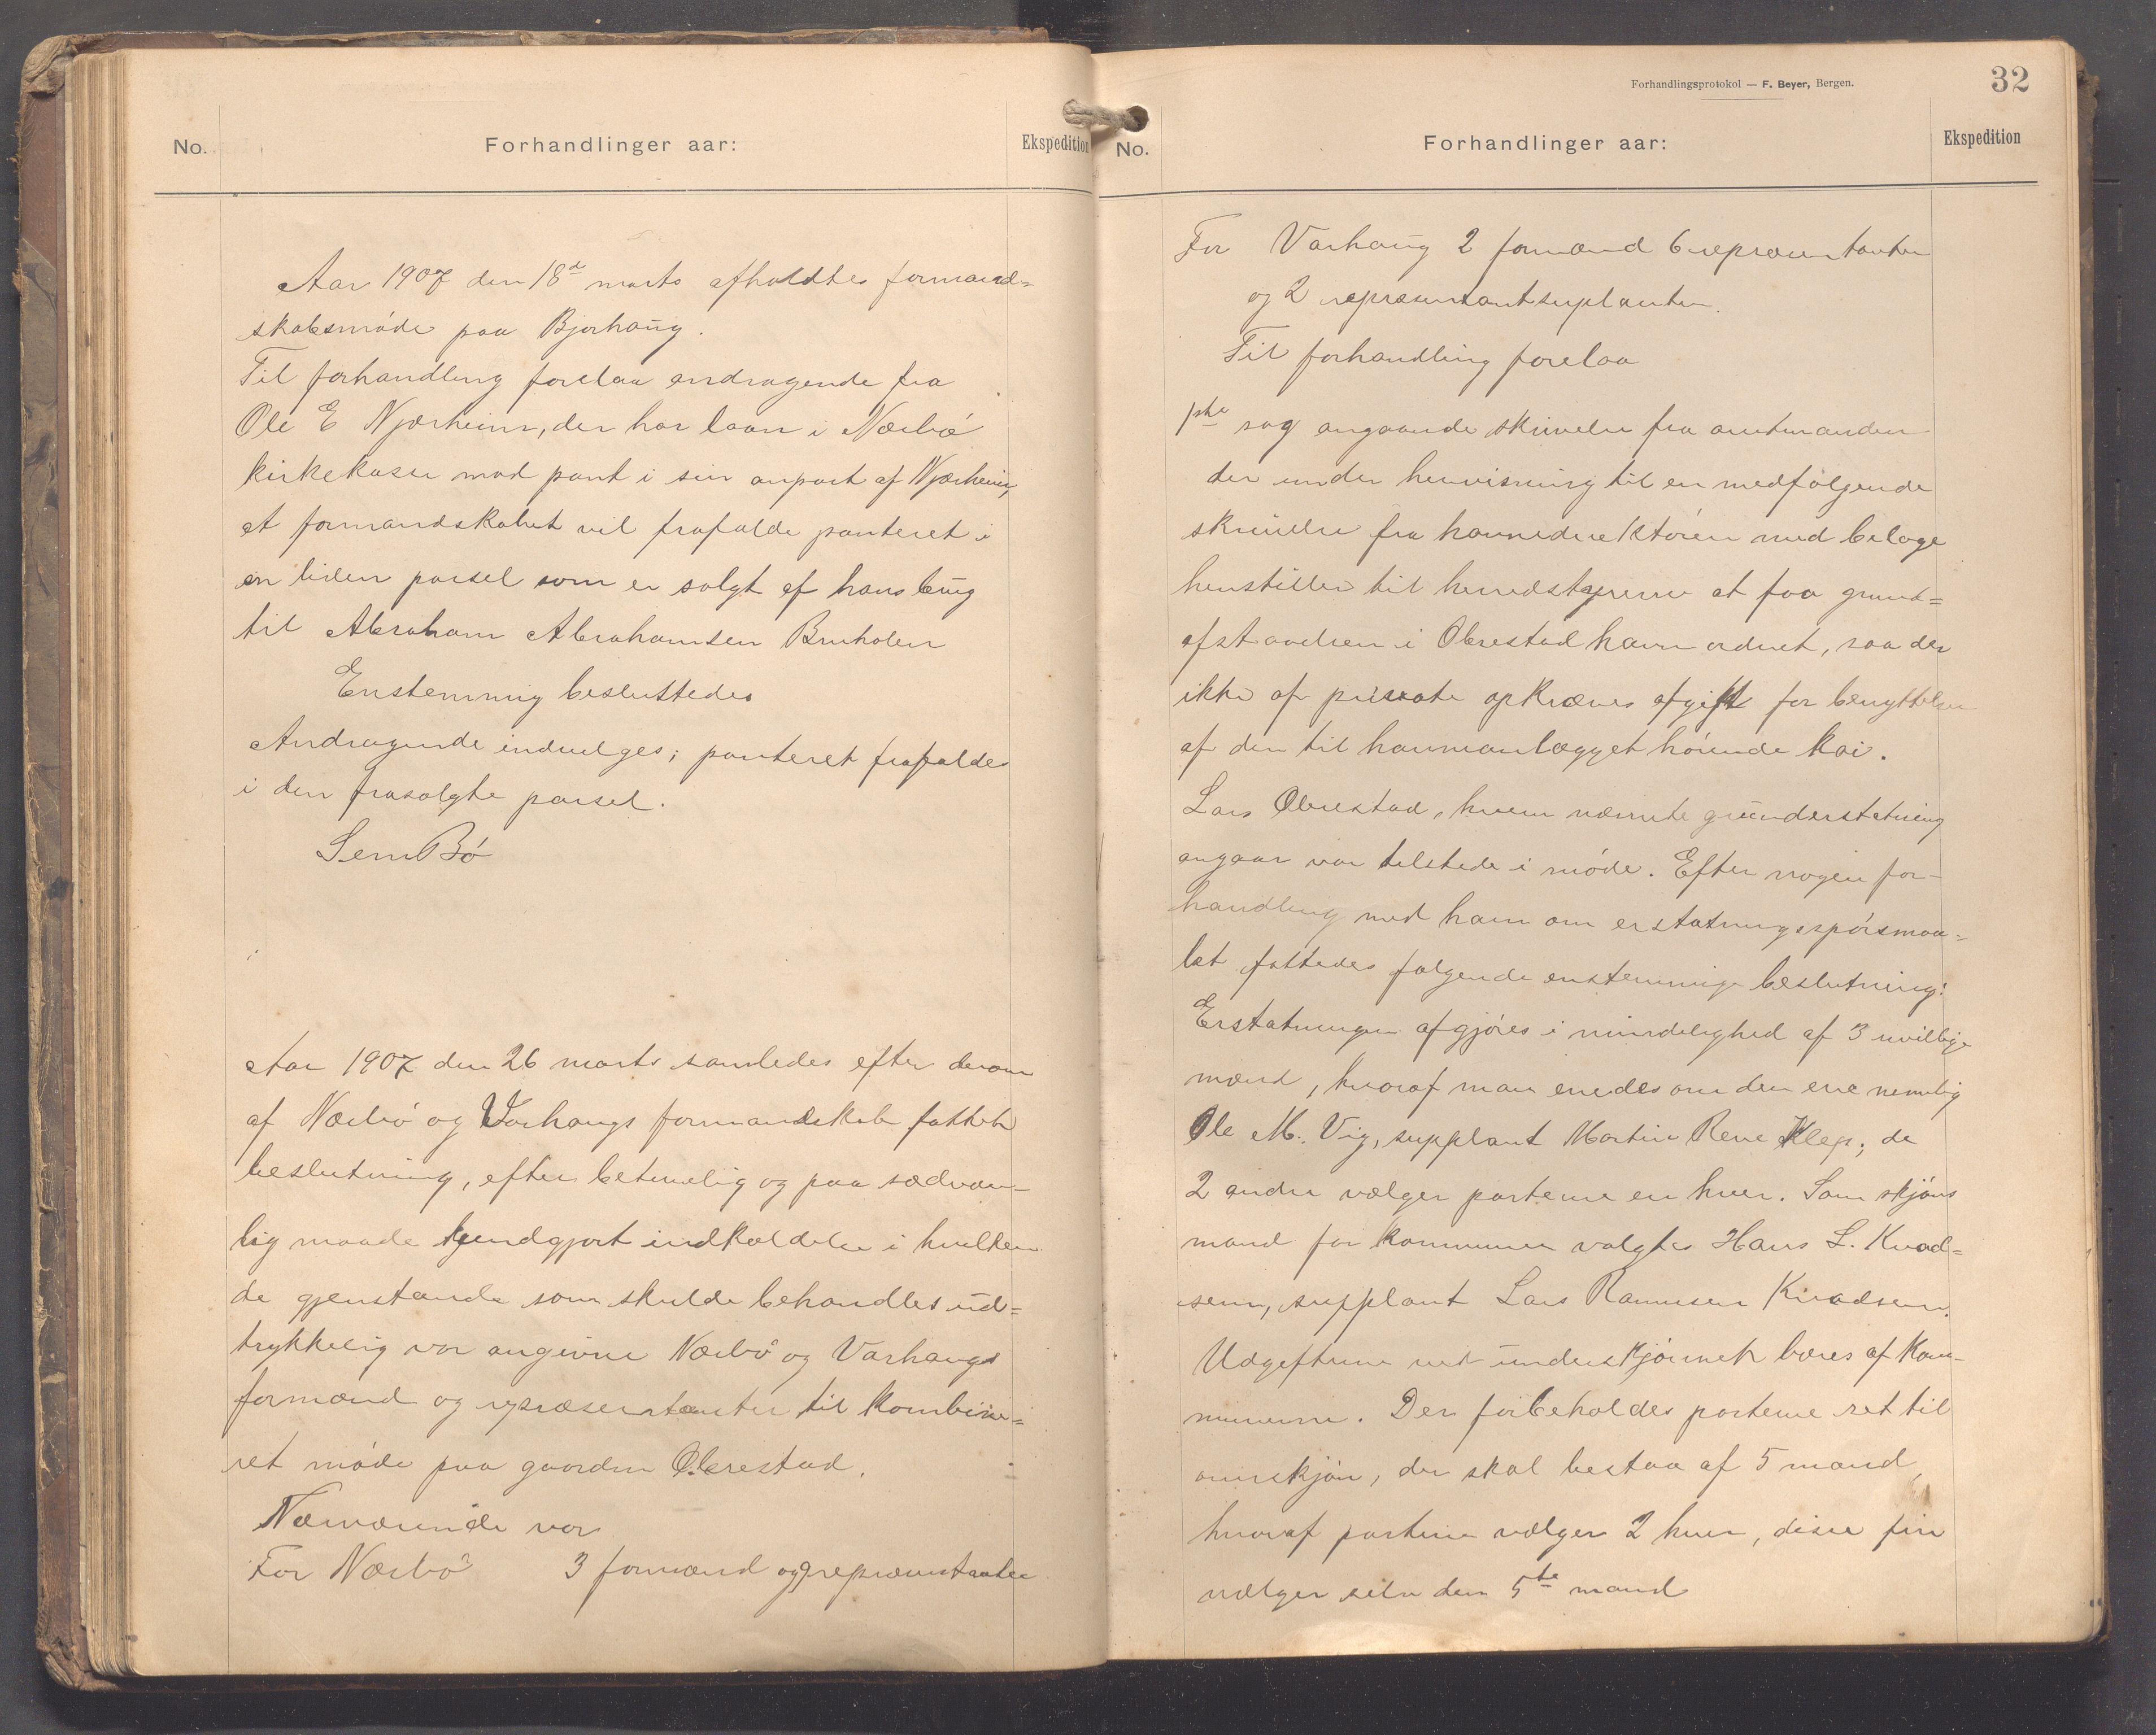 No.
Forhandlinger aar:
Ekspedition
Aar 1907 den 18de marts afholdtes formand=
skabsmøde paa Bjorhaug.
Til forhandling forelaa andragende fra
Ole E Njærheim, der har laan i Nærbø
kirkekasse mod pant i sin anpart af Njærheim,
at formandskabet vil frafalde panteret i
en liden parsel som er solgt af hans brug
til Abraham Abrahamsen Bruholen
Enstemmig besluttedes
Andragende indvelges; panteret frafaldes
i den frasolgte parsel.
Sem Bø
Aar 1907 den 26 marts samledes efter derom
af Nærbø og Varhaugs formandskab fattet
beslutning, efter betimelig og paa sædvan-
lig maade kundgjort indkaldelse i hvilken
de gjenstande som skulde behandles ud=
trykkelig var angivne Nærbø og Varhaugs
formænd og repræsentanter til kombine=
ret møde paa gaarden Obrestad.
Nærværende var
For Nærbø 3 formænd og 9 repræsentanter
Forhandlingsprotokol — F. Beyer, Bergen.
32
No.
Forhandlinger aar:
Ekspedition
For Varhaug 2 formænd 6 repræsentanter
og 2 repræsentantsuplanter.
Til forhandling forelaa
1ste sag angaaende skrivelse fra amtmanden
der under henvisning til en medfølgende
skrivelse fra havnedirektøren med bilage
henstiller til herredstyrerne at faa grund=
afstaaelsen i Obrestad havn ordnet, saa der
ikke af private opkræves afgift for benyttelsen
af den til havneanlægget hørende kai.
Lars Obrestad, hvem nævnte grunderstatning
angaar var tilstede i møde. Efter nogen for-
handling med ham om erstatningsspørsmaa=
let fattedes følgende enstemmige beslutning:
Erstatningen afgjøres i mindelighed af 3 uvillige
mænd, hvoraf man enedes om den ene nemlig
Ole M. Vig, supplant Martin Reve Klep; de
2 andre vælger parterne en hver. Som skjøns
mand for kommunen valgtes Hans L. Kvad=
sem, supplant Lars Rasmusen Kvadsem.
Udgifterne ved underskjønnet bæres af kom-
munerne. Der forbeholdes parterne ret til
overskjøn, der skal bestaa af 5 mand,
hvoraf parterne vælger 2 hver, disse fire
vælger selv den 5te mand